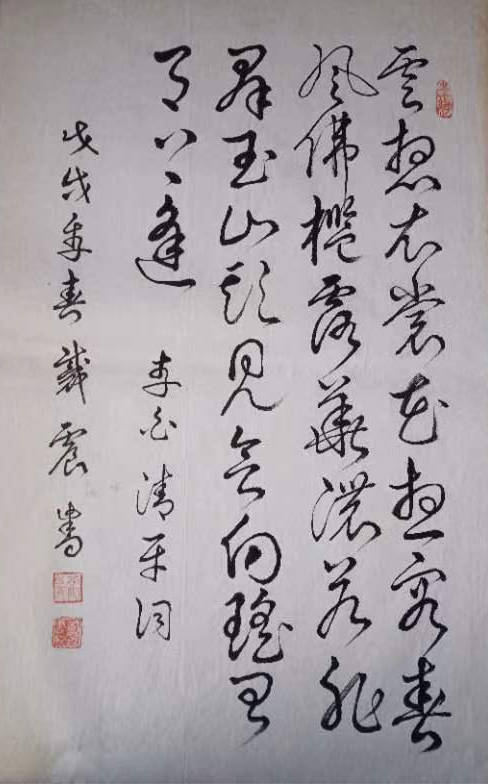 雲想衣裳花想容春
風佛檻露華濃若非
群玉山頭見會向瑤臺
月下逢 李白清平词
戊戌年春戴震書